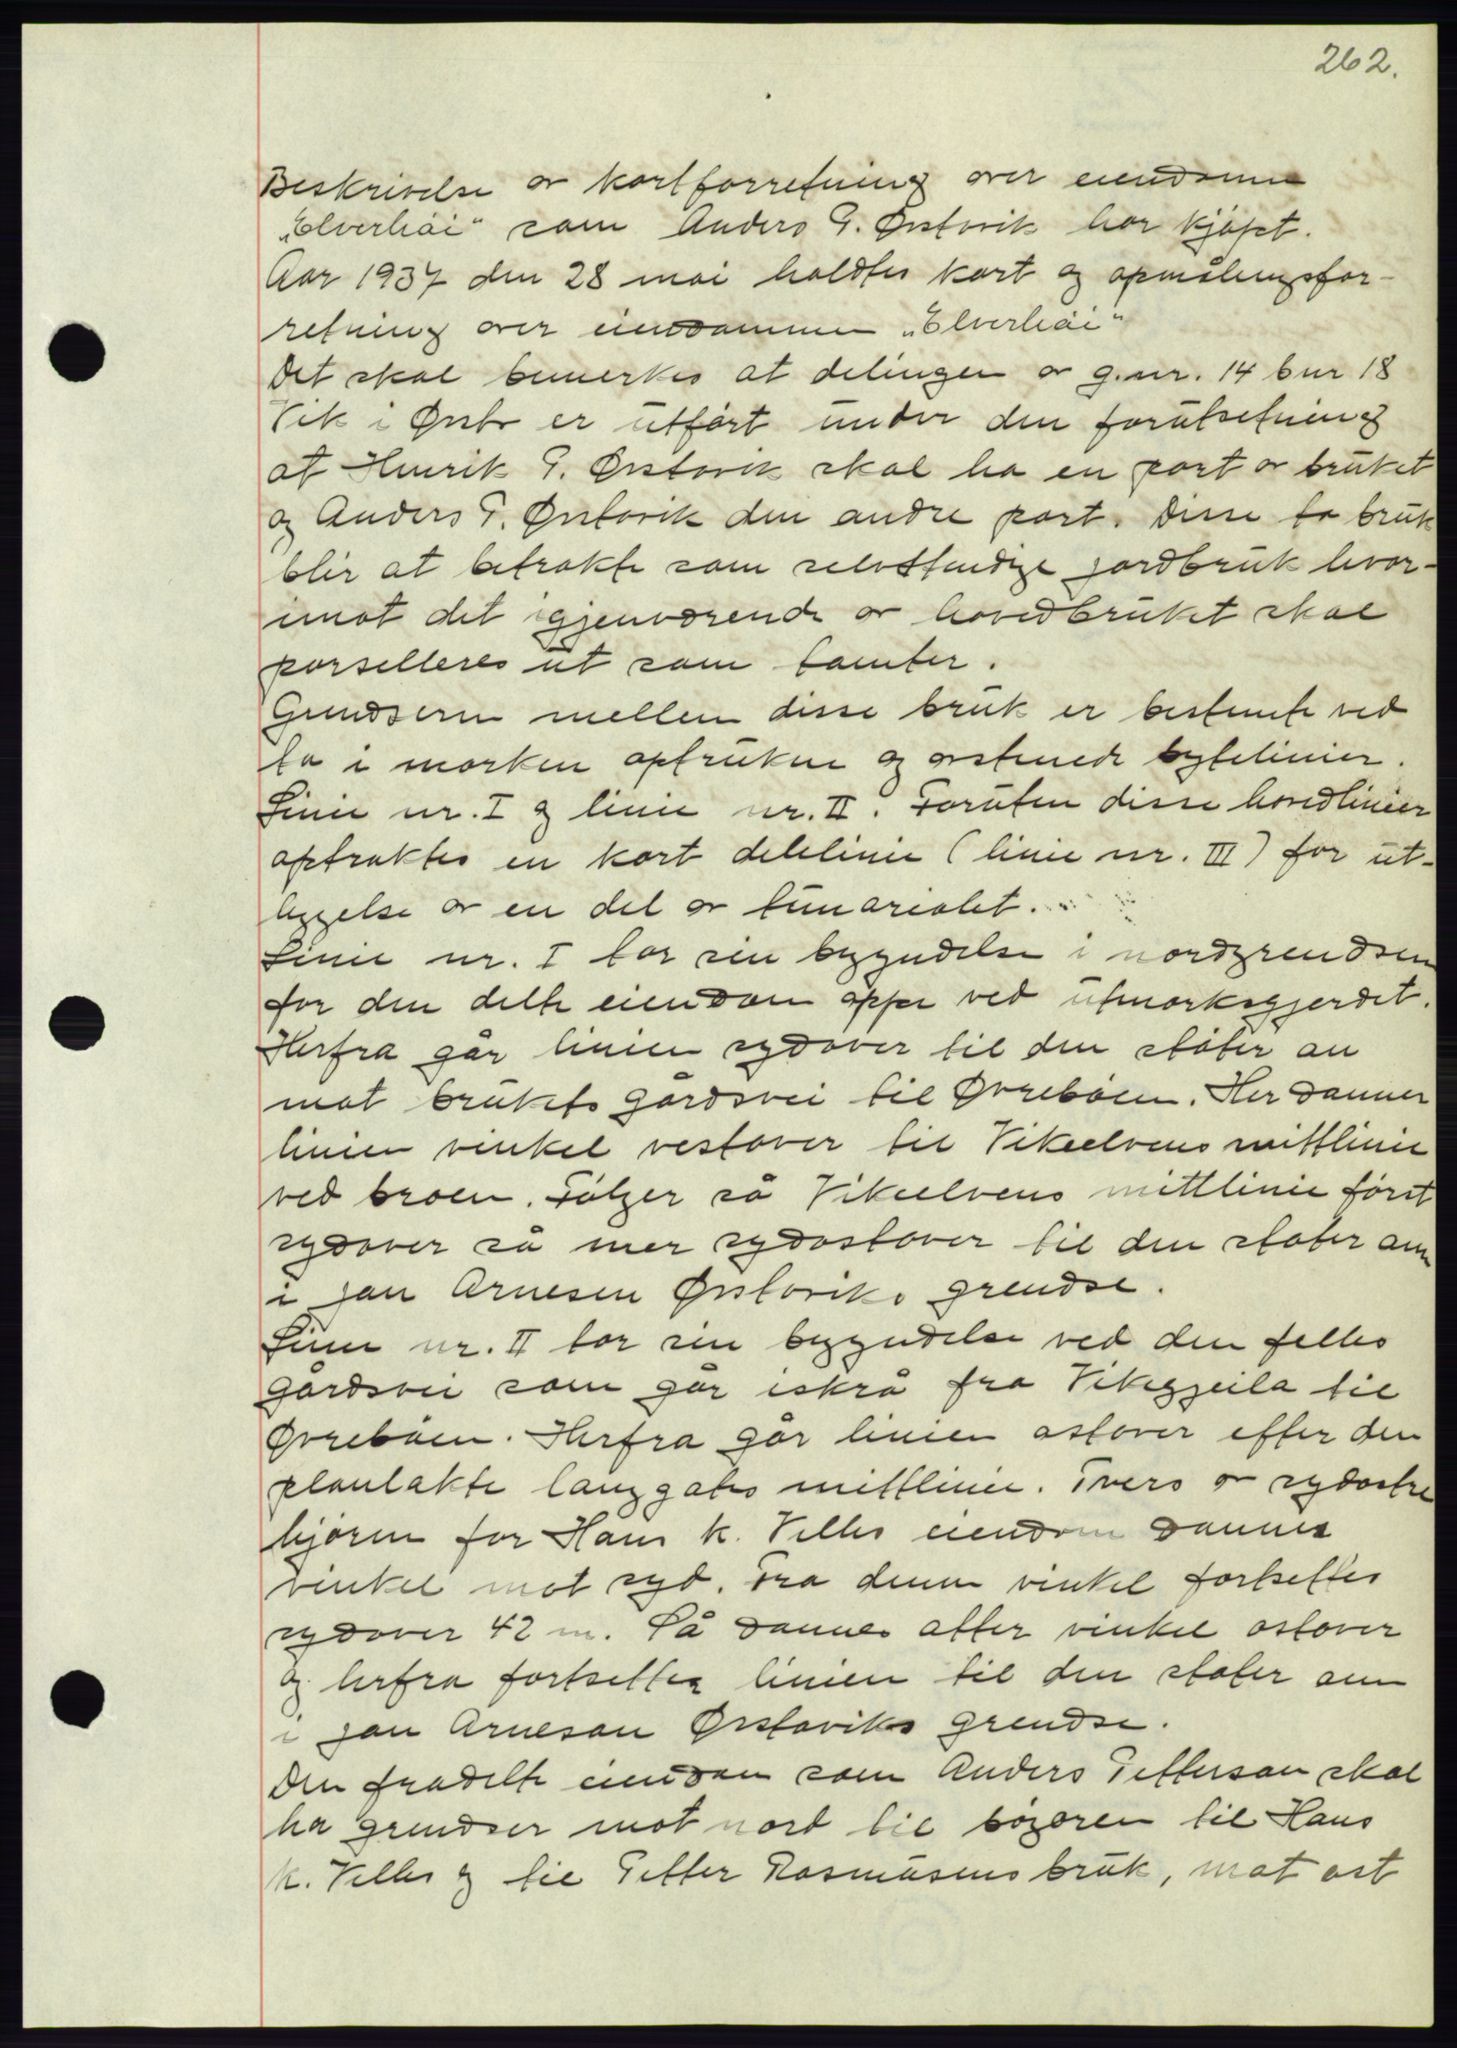 262.
Beskrivelse av kartforretning over eiendomme
„Elverhöi“ som Anders P. Ørstavik har kjöpt.
Aar 1937 den 28 mai holdtes kart og opmålingsfor-
retning over eiendommen „Elverhöi“
Det skal bemerkes at delingen av g.nr. 14 bnr 18
Vik i Ørsta er utfört under den forutsetning
at Henrik P. Ørstavik skal ha en part av bruket
og Anders P. Ørstavik den andre part. Disse to bruk
blir at betrakte som selvstendige jordbruk hvor-
imot det igjenværende av hovedbruket skal
parselleres ut som tomter.
Grendsern mellem disse bruk er bestemte ved
to i marken optrukne og avstenede bytelinier.
Linie nr. I og linie nr. II. Foruten disse hovedlinier
optraktes en kort delelinie (linie nr. III) for ut-
leggelse av en del av tunarealet.
Linie nr. I tar sin begyndelse i nordgrendsen
for den delte eiendom oppe ved utmarksgjerdet.
Herfra går linien sydover til den stöter an
mot brukets gårdsvei til Øvreböen. Her danner
linien vinkel vestover til Vikeelvens mittlinie
ved broen. Fölger så Vikeelvens mittlinie först
sydover så mer sydostover til den stöter an
i Jan Arnesen Ørstaviks grendse.
Linie nr. II tar sin begyndelse ved den felles
gårdsvei som går iskrå fra Vikegjeila til
Øvreböen. Herfra går linien ostover efter den
planlakte langgates mittlinie. Tvers av sydostre
hjörne for Hans K. Velles eiendom dannes
vinkel mot syd. Fra denne vinkel fortsettes
sydover 42 m. Så dannes atter vinkel ostover
og herfra fortsettes linien til den stöter an
i Jan Arneson Ørstaviks grendse.
Den fradelte eiendom som Anders Petterson skal
ha grendser mot nord til bögaren til Hans
K. Velles og til Petter Rasmusens bruk, mot ost